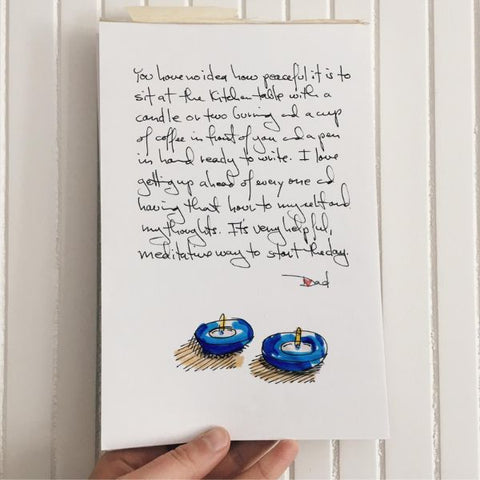 You have no idea how peaceful it is to
sit at the kitchen table with a
candle or two burning and a cup
of coffee in front of you and a pen
in hand ready to write. I love
getting up ahead of every one and
having that hour to myself and
my thoughts. It's very helpful,
meditative way to start the day.
Dad